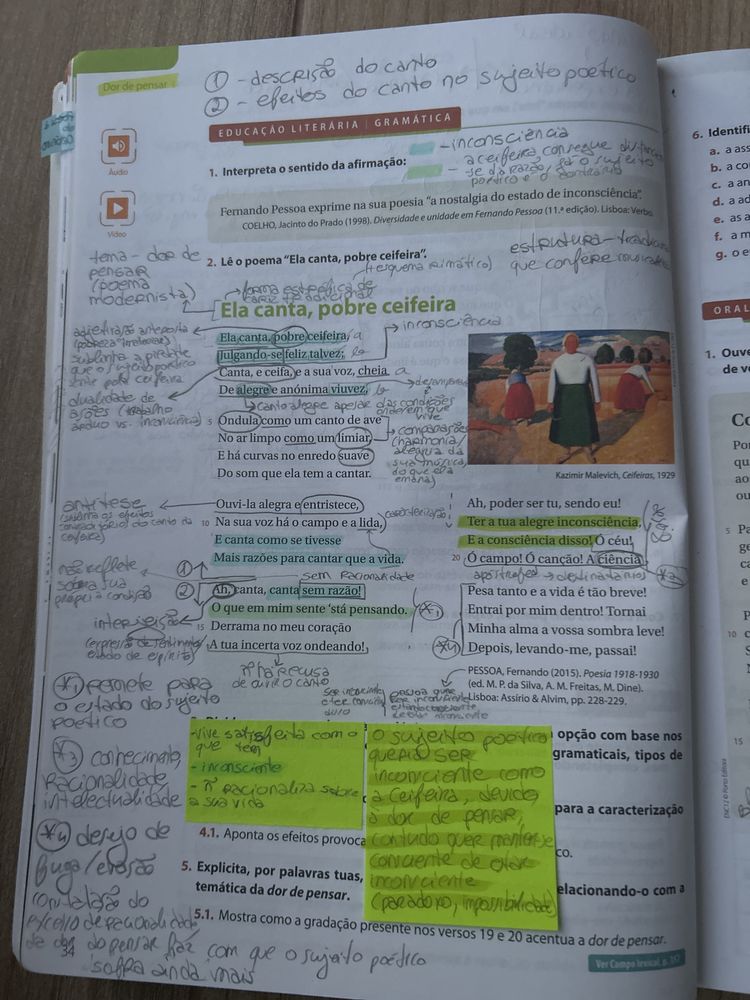 Dor de pensar
① - descrição do canto
② - efeitos do canto no sujeito poético
EDUCAÇÃO LITERÁRIA | GRAMÁTICA
Áudio
Vídeo
- inconsciência
a ceifeira consegue
se da razão, já o sujeito
poético é o contrário
1. Interpreta o sentido da afirmação:
Fernando Pessoa exprime na sua poesia "a nostalgia do estado de inconsciência".
COELHO, Jacinto do Prado (1998). Diversidade e unidade em Fernando Pessoa (11.ª edição). Lisboa: Verbo.
tema - dor de
pensar
(poema
modernista)
2. Lê o poema "Ela canta, pobre ceifeira".
(+ esquema rimático)
estrutura - tradicional
que confere
forma estrófica de
cariz tradicional
Ela canta, pobre ceifeira
Ela canta, pobre ceifeira, a
Julgando-se feliz talvez; b
Canta, e ceifa, e a sua voz, cheia a
De alegre e anónima viuvez, b
inconsciência
adjetivação anteposta
sublinha a piedade
que o sujeito poético
sente pela ceifeira
dualidade de
ações (trabalho
árduo vs. inconsciência)
Canto alegre apesar das condições
em que
vive
5 Ondula como um canto de ave
No ar limpo como um limiar,
E há curvas no enredo suave
Do som que ela tem a cantar.
comparações
(harmonia/
alegria da
sua música,
do que ela
emana)
Kazimir Malevich, Ceifeiras, 1929
antítese
Ouvi-la alegra e entristece,
10 Na sua voz há o campo e a lida,
E canta como se tivesse
Mais razões para cantar que a vida.
não reflete
sobre a sua
própria condição
①
②
sem racionalidade
Ah, canta, canta sem razão!
O que em mim sente 'stá pensando.
15 Derrama no meu coração
A tua incerta voz ondeando!
*1
interjeição
(expressão de sentimento/
estado de espírito)
Ah, poder ser tu, sendo eu!
Ter a tua alegre inconsciência,
E a consciência disso! Ó céu!
20 Ó campo! Ó canção! A ciência
apóstrofes → destinatários
*3
Pesa tanto e a vida é tão breve!
Entrai por mim dentro! Tornai
Minha alma a vossa sombra leve!
*4
Depois, levando-me, passai!
PESSOA, Fernando (2015). Poesia 1918-1930
(ed. M. P. da Silva, A. M. Freitas, M. Dine).
Lisboa: Assírio & Alvim, pp. 228-229.
*1 remete para
o estado do sujeito
poético
*3 conhecimento,
racionalidade,
intelectualidade
*4 desejo de
fuga/evasão
do
excesso de racionalidade
da dor do pensar faz com que o sujeito poético
sofra ainda mais
- vive satisfeita com o
que tem
- inconsciente
- ñ racionaliza sobre
a sua vida
O sujeito poético
queria ser
inconsciente como
a ceifeira, devido
à dor de pensar,
contudo quer manter-se
consciente de estar
inconsciente
(paradoxo, impossibilidade)
opção com base nos
gramaticais, tipos de
para a caracterização
4.1. Aponta os efeitos provoca
co.
5. Explicita, por palavras tuas,
elacionando-o com a
temática da dor de pensar.
5.1. Mostra como a gradação presente nos versos 19 e 20 acentua a dor de pensar.
Ver Campo lexical, p. 357
34
6. Identifi
a. a ass
b. a co
c. a an
d. a ad
e. as a
f. a m
g. o e
ORAL
1. Ouve
de v